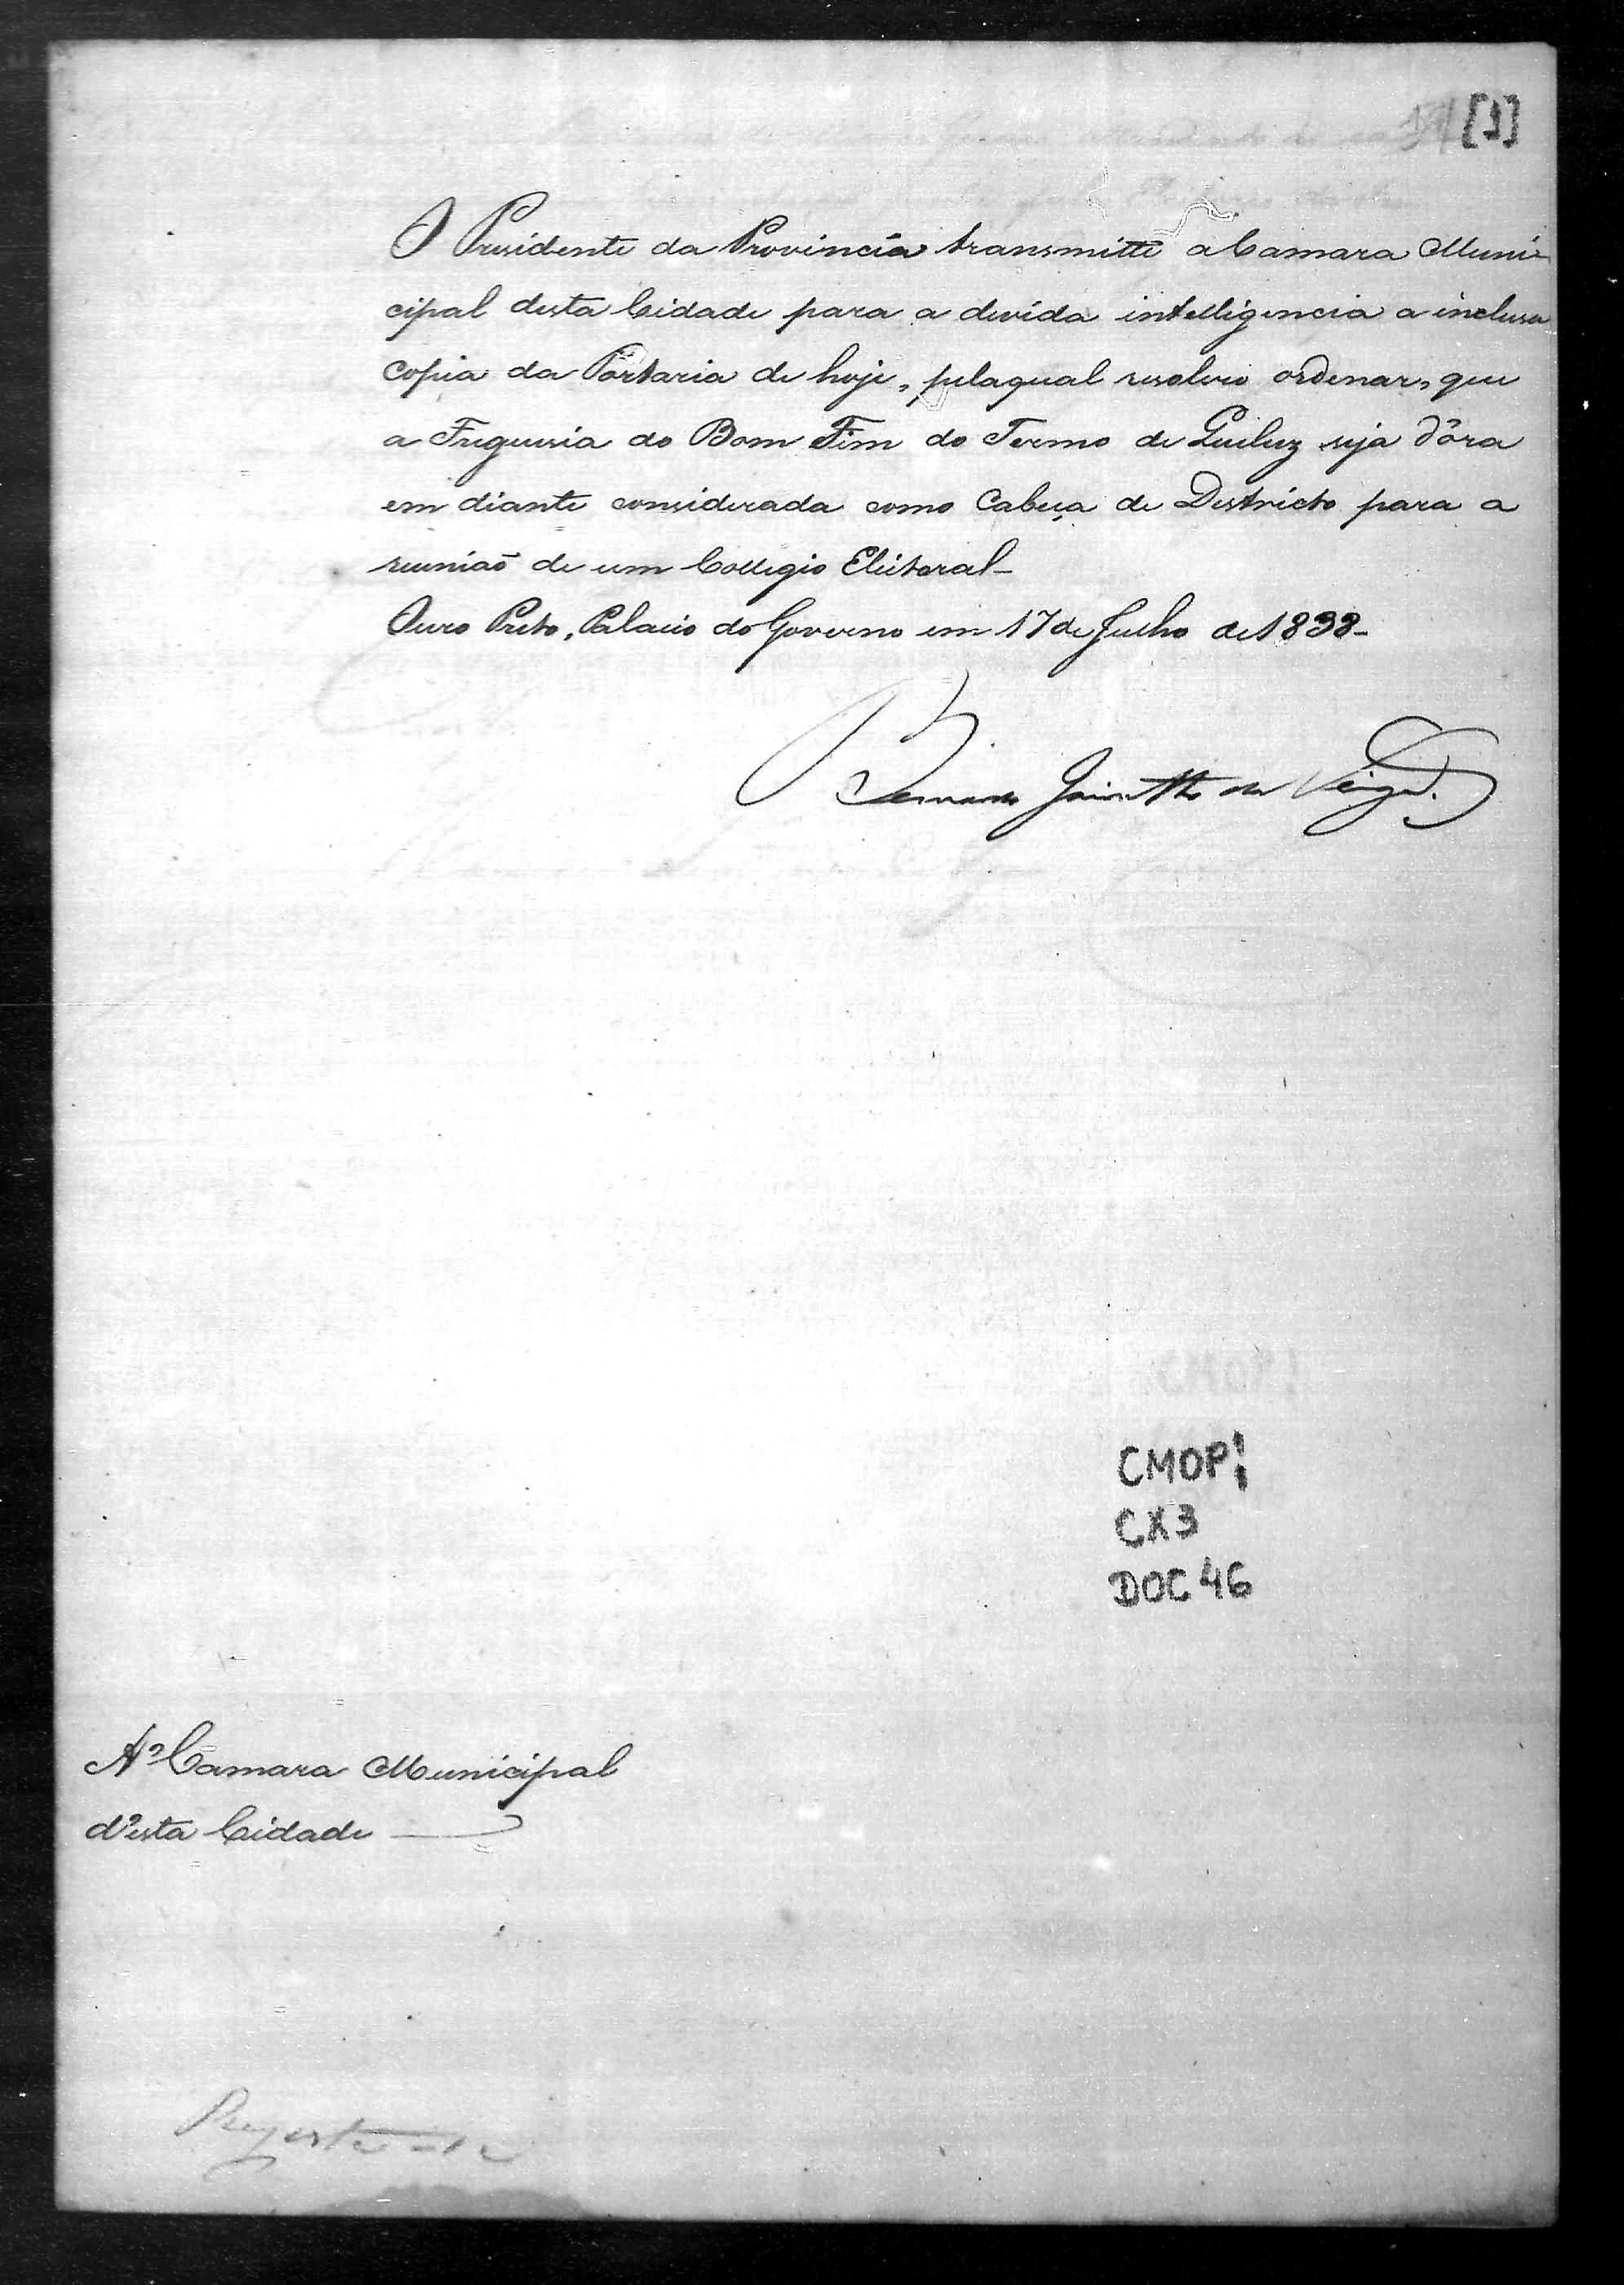 [1]
O Presidente da Provincia transmitte a Camara Muni-
cipal desta Cidade para a devida intelligencia a inclusa
copia da Portaria de hoje, pelaqual resolveo ordenar, que
a Freguesia do Bom Fim do Termo de Queluz seja d'ora
em diante considerada como Cabeça de Districto para a
reuniaõ de um Collegio Eleitoral_
Ouro Preto, Palacio do Governo em 17 de Julho de 1838_
Bernardo Jacintho da Veiga.
CMOP:
CX3
DOC 46
A' Camara Municipal
d'esta Cidade
Registe-se